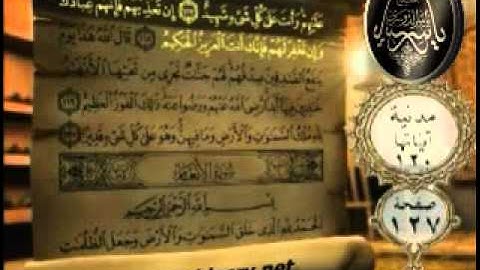 عَلَيْهِمْ وَأَنتَ عَلَىٰ كُلِّ شَىْءٍ شَهِيدٌ ١١٧ إِن تُعَذِّبْهُمْ فَإِنَّهُمْ عِبَادُكَ
وَإِن تَغْفِرْ لَهُمْ فَإِنَّكَ أَنتَ ٱلْعَزِيزُ ٱلْحَكِيمُ ١١٨ قَالَ ٱللَّهُ هَٰذَا يَوْمُ
يَنفَعُ ٱلصَّٰدِقِينَ صِدْقُهُمْ لَهُمْ جَنَّٰتٌ تَجْرِى مِن تَحْتِهَا ٱلْأَنْهَٰرُ
خَٰلِدِينَ فِيهَآ أَبَدًا رَّضِىَ ٱللَّهُ عَنْهُمْ وَرَضُوا۟ عَنْهُ ذَٰلِكَ ٱلْفَوْزُ ٱلْعَظِيمُ ١١٩
لِلَّهِ مُلْكُ ٱلسَّمَٰوَٰتِ وَٱلْأَرْضِ وَمَا فِيهِنَّ وَهُوَ عَلَىٰ كُلِّ شَىْءٍ قَدِيرٌۢ ١٢٠
سُورَةُ الأَنْعَامِ
بِسْمِ ٱللَّهِ ٱلرَّحْمَٰنِ ٱلرَّحِيمِ
ٱلْحَمْدُ لِلَّهِ ٱلَّذِى خَلَقَ ٱلسَّمَٰوَٰتِ وَٱلْأَرْضَ وَجَعَلَ ٱلظُّلُمَٰتِ
مدنية
آياتها
١٢٠
صفحة
١٢٧
.net